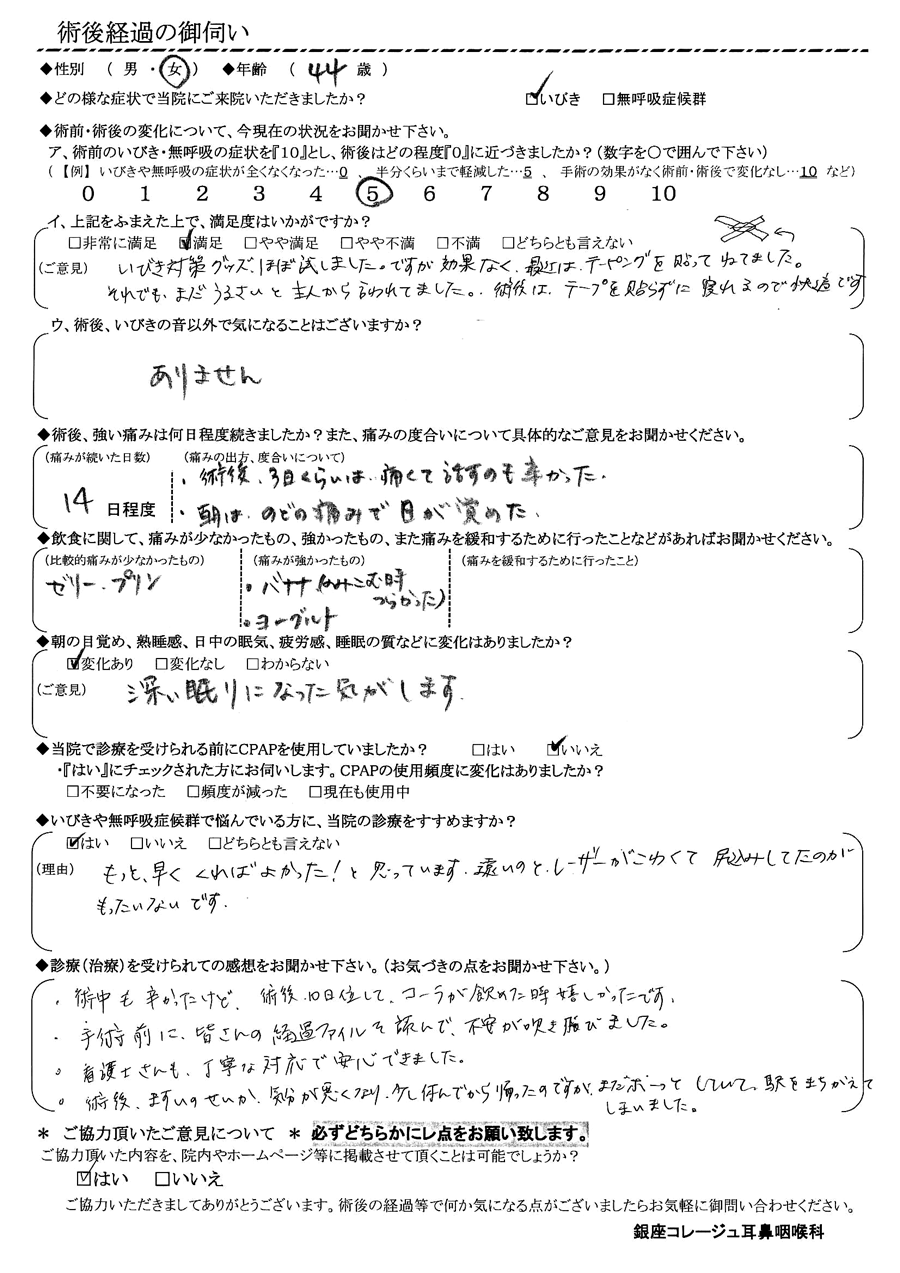 術後経過の御伺い
◆性別 ( 男 ・ 女 ) ◆年齢 ( 44 歳 )
◆どの様な症状で当院にご来院いただきましたか? ☑いびき □無呼吸症候群
◆術前・術後の変化について、今現在の状況をお聞かせ下さい。
ア、術前のいびき・無呼吸の症状を『10』とし、術後はどの程度『0』に近づきましたか?(数字を○で囲んで下さい)
(【例】 いびきや無呼吸の症状が全くなくなった…0 、 半分くらいまで軽減した…5 、 手術の効果がなく術前・術後で変化なし…10 など)
0 1 2 3 4 5 6 7 8 9 10
イ、上記をふまえた上で、満足度はいかがですか?
□非常に満足 ☑満足 □やや満足 □やや不満 □不満 □どちらとも言えない
(ご意見) いびき対策グッズ、ほぼ試しました。ですが効果なく、最近は、テーピングを貼ってねてました。
それでも、まだうるさいと主人から言われてました。術後は、テープを貼らずに寝れるので快適です
ウ、術後、いびきの音以外で気になることはございますか?
ありません
◆術後、強い痛みは何日程度続きましたか?また、痛みの度合いについて具体的なご意見をお聞かせください。
(痛みが続いた日数) (痛みの出方、度合いについて)
・術後、3日くらいは、痛くて話すのも辛かった.
14 日程度
・朝は、のどの痛みで目が覚めた.
◆飲食に関して、痛みが少なかったもの、強かったもの、また痛みを緩和するために行ったことなどがあればお聞かせください。
(比較的痛みが少なかったもの) (痛みが強かったもの) (痛みを緩和するために行ったこと)
ゼリー、プリン ・バナナ(のみこむ時
つらかった)
・ヨーグルト
◆朝の目覚め、熟睡感、日中の眠気、疲労感、睡眠の質などに変化はありましたか?
☑変化あり □変化なし □わからない
(ご意見) 深い眠りになった気がします.
◆当院で診療を受けられる前にCPAPを使用していましたか? □はい ☑いいえ
・『はい』にチェックされた方にお伺いします。CPAPの使用頻度に変化はありましたか?
□不要になった □頻度が減った □現在も使用中
◆いびきや無呼吸症候群で悩んでいる方に、当院の診療をすすめますか?
☑はい □いいえ □どちらとも言えない
(理由) もっと、早くくればよかった!と思っています.遠いのと、レーザーがこわくて尻込みしてたのが
もったいないです.
◆診療(治療)を受けられての感想をお聞かせ下さい。(お気づきの点をお聞かせ下さい。)
・術中も辛かったけど、術後.10日位して、コーラが飲めた時嬉しかったです.
・手術前に、皆さんの経過ファイルを読んで、不安が吹き飛びました。
・看護士さんも、丁寧な対応で安心できました。
・術後、ますいのせいか、気分が悪くなり、少し休んでから帰ったのですが、まだボーっとしていて、駅をまちがえて
しまいました。
＊ ご協力頂いたご意見について ＊ 必ずどちらかにレ点をお願い致します。
ご協力頂いた内容を、院内やホームページ等に掲載させて頂くことは可能でしょうか?
☑はい □いいえ
ご協力いただきましてありがとうございます。術後の経過等で何か気になる点がございましたらお気軽に御問い合わせください。
銀座コレージュ耳鼻咽喉科